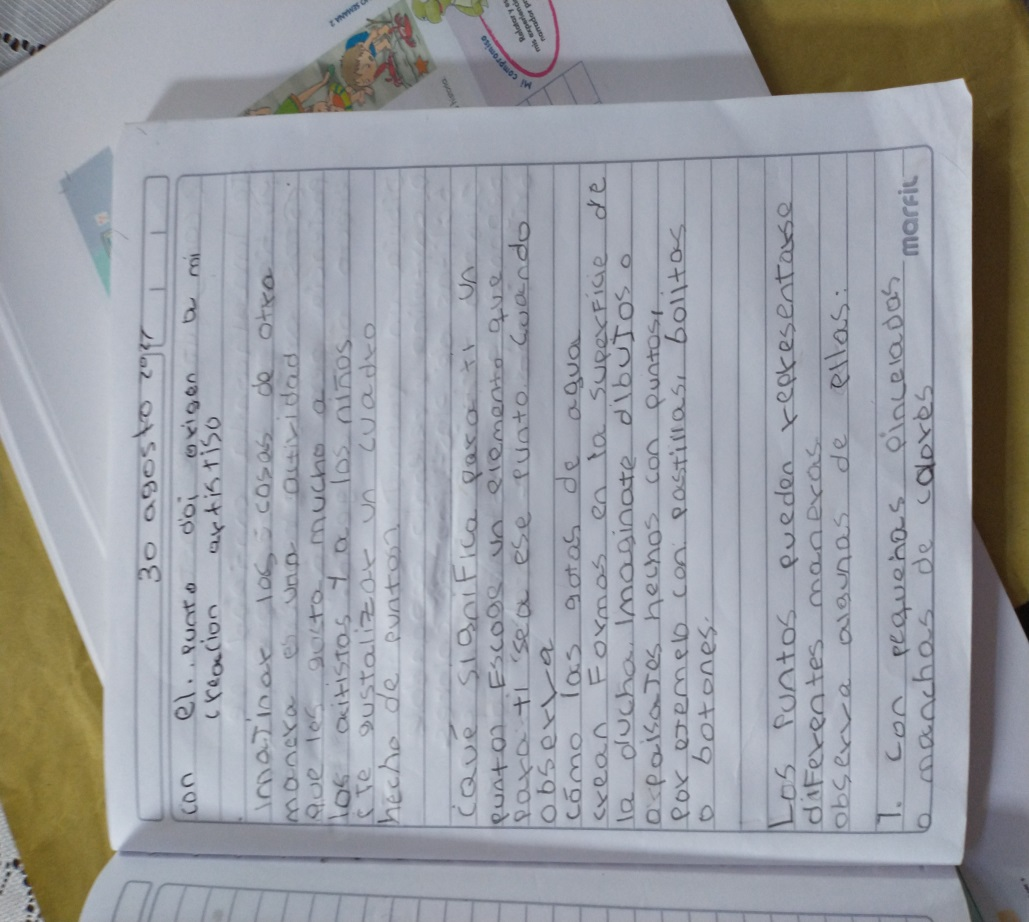 30 agosto 2021
con el.. punto doi origen a mi
creacion artistiso
Imnajinar las cosas de otra
manera es una autividad
que les gusta mucho a
los aitistas y a los niños
¿Te gustalizar un cuadro
hecho de punton
¿Qué significa para ti un
punto? Escoge un elemento que
para ti sea ese punto cuando
observa
cómo las gotas de agua
crean Formas en la superficie de
la ducha Imaginate dibujos o
o paisajes hechos con puntos,
Por ejemelo con pastillas, bolitas
o botones.
Los Puntos pueden representarse
diferentes maneras
observa algunas de ellas:
1. con pequeñas pinceladas
o manchas de colores
marfil
SEMANA 2
Mi compromiso
Relatar y es
mis experiencia
narrador p